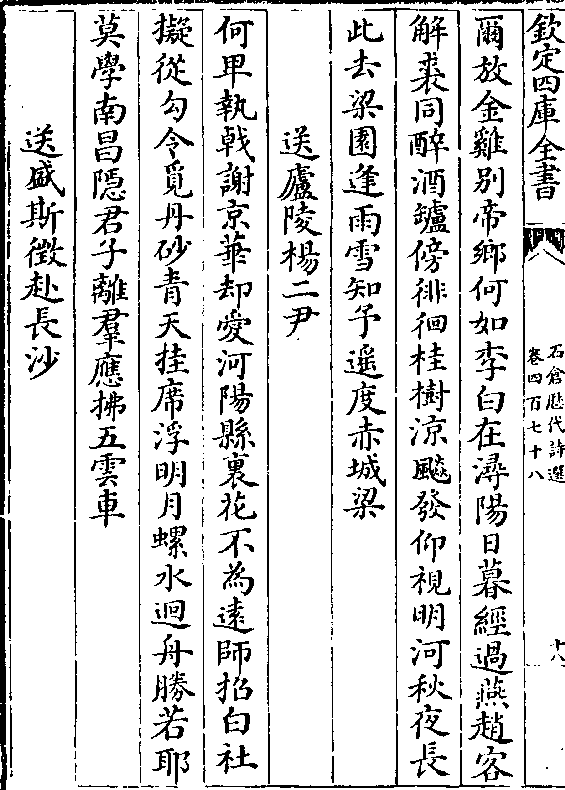 欽定四庫全書
石倉歷代詩選
卷四百七十八
十八
爾放金雞别帝鄉何如李白在潯陽日暮經過燕趙客
解裘同醉酒罏傍徘徊桂樹涼颷發仰視明河秋夜長
此去梁園逢雨雪知予遥度赤城梁
送廬陵楊二尹
何早執戟謝京華却愛河陽縣裏花不為遠師招白社
擬從勾令覓丹砂青天挂席浮明月螺水迴舟勝若耶
莫學南昌隱君子離羣應拂五雲車
送盛斯徴赴長沙